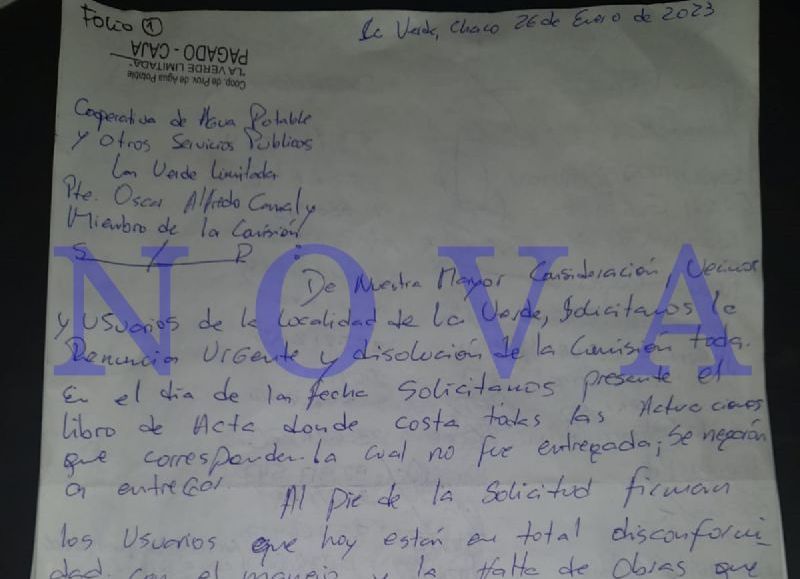 Folio 1
La Verde, Chaco 26 de Enero de 2023
Coop. de Prov. de Agua Potable
"LA VERDE LIMITADA"
PAGADO - CAJA
Cooperativa de Agua Potable
y Otros Servicios Publicos
La Verde Limitada
Pte. Oscar Alfredo Canal y
Miembro de la Comisión
S / R :
NOVA
De Nuestra Mayor Consideración, Vecinos
y Usuarios de la localidad de La Verde, Solicitamos la
Renuncia Urgente y disolución de la Comisión toda.
En el día de la fecha Solicitamos presente el
libro de Acta donde costa todas las Actuaciones
que corresponden la cual no fue entregada; Se negarón
a entregar.
Al pie de la Solicitud firman
los Usuarios que hoy están en total disconformi-
dad con el manejo y la falta de Obras que